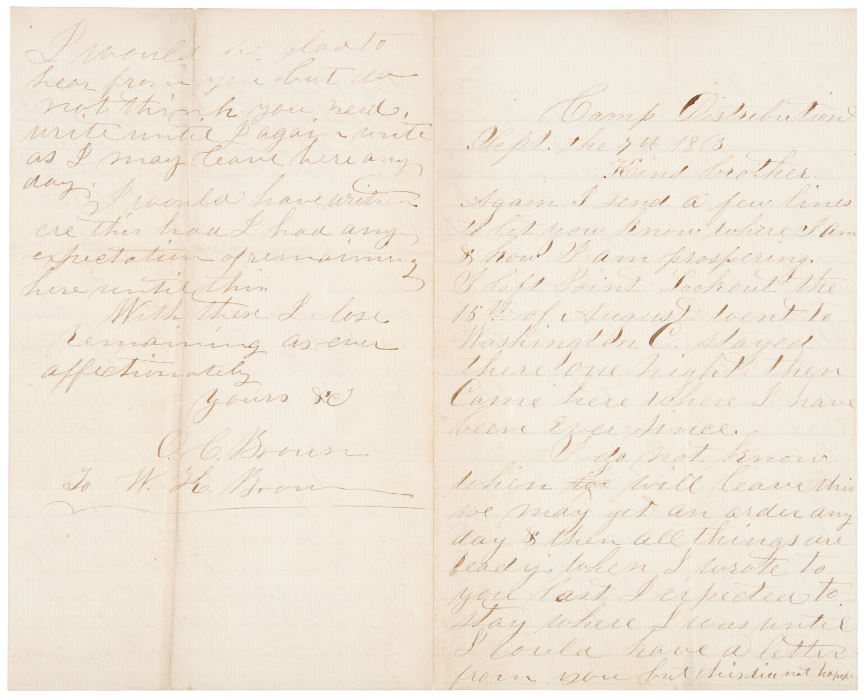 Camp Distribution
Sept. the 7th 1863
Kind brother.
Again I send a few lines
to let you know where I am
& how I am prospering.
I left Point Lookout the
15th of August went to
Washington C. stayed
there one night then
Came here where I have
been Ever since.
I do not know
when we will leave this
we may get an order any
day & then all things are
ready. when I wrote to
you last I expected to
stay where I was until
I could have a letter
from you but this did not
I would be glad to
hear from you but do
not think you need,
write until I again write
as I may leave here any
day.
I would have written
ere this had I had any
expectation of remaining
here until this.
With these I close
remaining as ever
affectionately
yours &c
O. C. Brown
To W. H. Brown